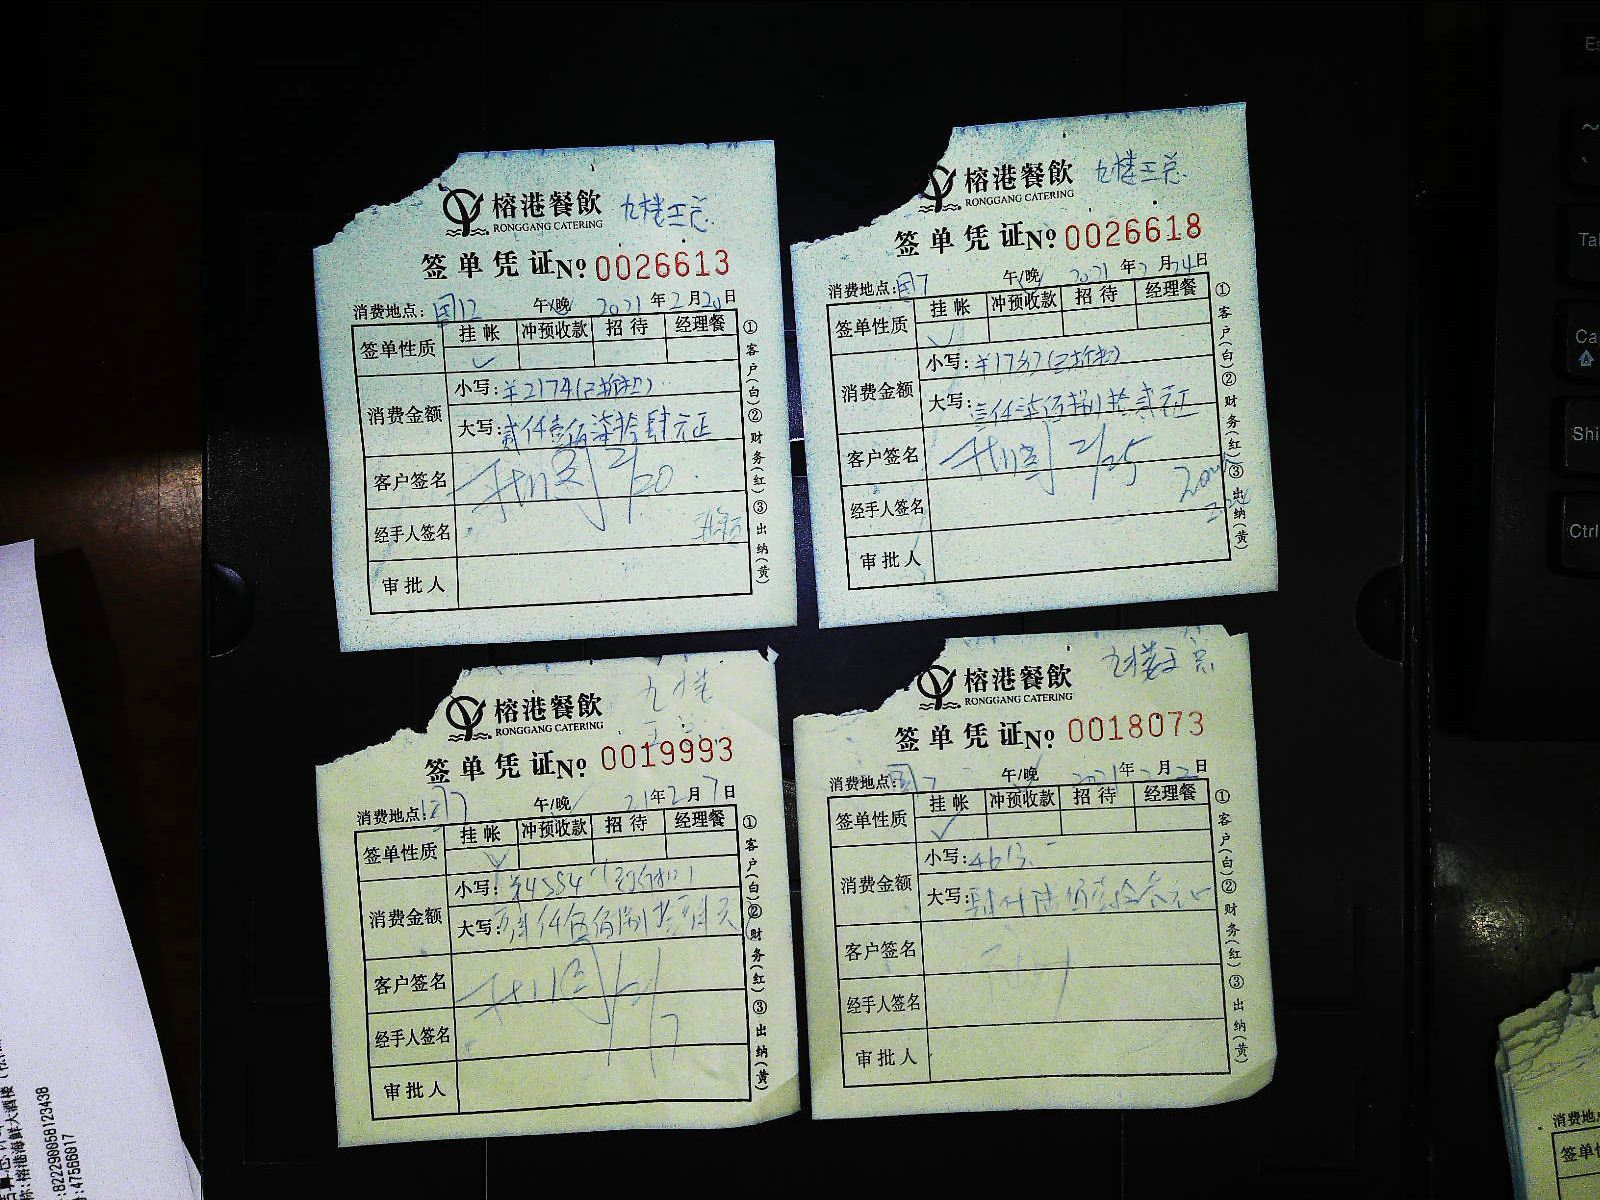 榕港餐飲 九楼王总
RONGGANG CATERING
签单凭证 № 0026613
消费地点：国12 午/晚 2021年2月20日
签单性质 挂帐 冲预收款 招待 经理餐
✓
消费金额 小写：¥2174(已折扣)
大写：贰仟壹佰柒拾肆元正
客户签名 2/20
经手人签名
审批人
①客户(白)②财务(红)③出纳(黄)
榕港餐飲 九楼王总
RONGGANG CATERING
签单凭证 № 0026618
消费地点：国7 午/晚 2021年2月24日
签单性质 挂帐 冲预收款 招待 经理餐
✓
消费金额 小写：(已折扣)
大写：壹仟柒佰捌拾贰元正
客户签名 2/25
经手人签名
审批人
①客户(白)②财务(红)③出纳(黄)
榕港餐飲 九楼
RONGGANG CATERING
签单凭证 № 0019993
消费地点：7 午/晚 21年2月7日
签单性质 挂帐 冲预收款 招待 经理餐
✓
消费金额 小写：¥4584(已折扣)
大写：肆仟伍佰捌拾肆元
客户签名
经手人签名
审批人
①客户(白)②财务(红)③出纳(黄)
榕港餐飲 九楼王总
RONGGANG CATERING
签单凭证 № 0018073
消费地点：国7 午/晚 2021年2月2日
签单性质 挂帐 冲预收款 招待 经理餐
✓
消费金额 小写：4613.-
大写：肆仟陆佰壹拾叁元
客户签名
经手人签名
审批人
①客户(白)②财务(红)③出纳(黄)
榕港海鲜大酒楼
:82229005812343​8
:47566017
消费地
签单性
Tab
Shi
Ctrl